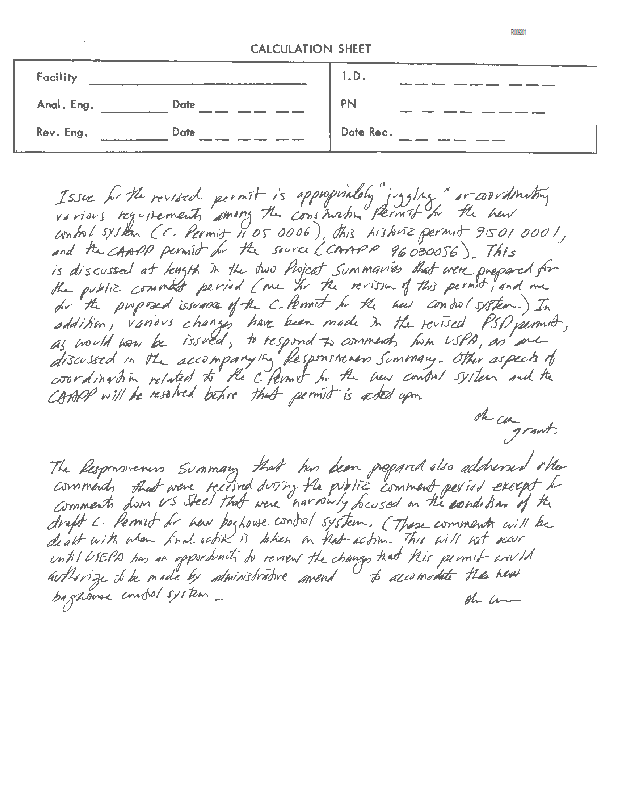 CALCULATION SHEET
Facility I.D.
Anal. Eng. Date PN
Rev. Eng. Date Date Rec.
Issue for the revised permit is appropriately "juggling" or coordinating
various requirements among the construction Permit for the new
control system (C. Permit 11 05 0006), this historic permit 9501 0001,
and the CAAPP permit for the source (CAAPP 96030056). This
is discussed at length in the two Project Summaries that were prepared for
the public comment period (one for the revision of this permit, and one
for the proposed issuance of the C. Permit for the new control system.) In
addition, various changes have been made in the revised PSD permit,
as would now be issued, to respond to comments from USEPA, as are
discussed in the accompanying Responsiveness Summary. Other aspects of
coordination related to the C. Permit for the new control system and the
CAAPP will be resolved before that permit is acted upon
grant.
The Responsiveness Summary that has been prepared also addressed other
comments that were received during the public comment period except for
comments from US Steel that were narrowly focused on the condition of the
draft C. Permit for new baghouse control system. (These comments will be
dealt with when final action is taken on that action. This will not occur
until USEPA has an opportunity to review the changes that this permit would
authorize to be made by administrative amend to accomodate the new
baghouse control system